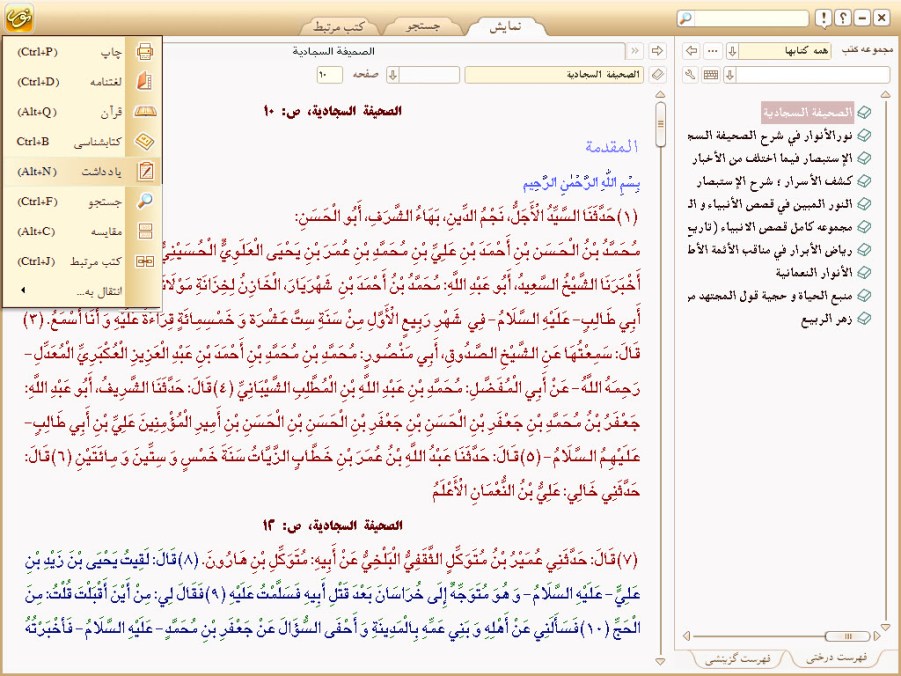 نمایش
جستجو
کتب مرتبط
مجموعه کتب
همه کتابها
الصحيفة السجادية
نورالأنوار في شرح الصحيفة السج
الإستبصار فيما اختلف من الأخبار
كشف الأسرار ؛ شرح الإستبصار
النور المبين في قصص الأنبياء و ال
مجموعه کامل قصص الانبیاء (تاریخ
رياض الأبرار في مناقب الأئمة الأط
الأنوار النعمانية
منبع الحياة و حجية قول المجتهد مر
زهر الربيع
فهرست درختی
فهرست گزینشی
الصحيفة السجادية
الصحيفة السجادية
صفحه ۱۰
چاپ (Ctrl+P)
لغتنامه (Ctrl+D)
قرآن (Alt+Q)
کتابشناسی Ctrl+B
یادداشت (Alt+N)
جستجو (Ctrl+F)
مقایسه (Alt+C)
کتب مرتبط (Ctrl+J)
انتقال به...
الصحيفة السجادية، ص: ۱۰
المقدمة
بِسْمِ اللَّهِ الرَّحْمَٰنِ الرَّحِيمِ
(۱) حَدَّثَنَا السَّيِّدُ الْأَجَلُّ، نَجْمُ الدِّينِ، بَهَاءُ الشَّرَفِ، أَبُو الْحَسَنِ:
مُحَمَّدُ بْنُ الْحَسَنِ بْنِ أَحْمَدَ بْنِ عَلِيِّ بْنِ مُحَمَّدِ بْنِ عُمَرَ بْنِ يَحْيَى الْعَلَوِيُّ الْحُسَيْنِيُّ
أَخْبَرَنَا الشَّيْخُ السَّعِيدُ، أَبُو عَبْدِ اللَّهِ: مُحَمَّدُ بْنُ أَحْمَدَ بْنِ شَهْرَيَارَ، الْخَازِنُ لِخِزَانَةِ مَوْلَانَا
أَبِي طَالِبٍ- عَلَيْهِ السَّلَامُ- فِي شَهْرِ رَبِيعٍ الْأَوَّلِ مِنْ سَنَةِ سِتَّ عَشْرَةَ وَ خَمْسِمِائَةٍ قِرَاءَةً عَلَيْهِ وَ أَنَا أَسْمَعُ. (۳)
قَالَ: سَمِعْتُهَا عَنِ الشَّيْخِ الصَّدُوقِ، أَبِي مَنْصُورٍ: مُحَمَّدِ بْنِ مُحَمَّدِ بْنِ أَحْمَدَ بْنِ عَبْدِ الْعَزِيزِ الْعُكْبَرِيِّ الْمُعَدَّلِ-
رَحِمَهُ اللَّهُ- عَنْ أَبِي الْمُفَضَّلِ: مُحَمَّدِ بْنِ عَبْدِ اللَّهِ بْنِ الْمُطَّلِبِ الشَّيْبَانِيِّ (٤) قَالَ: حَدَّثَنَا الشَّرِيفُ، أَبُو عَبْدِ اللَّهِ:
جَعْفَرُ بْنُ مُحَمَّدِ بْنِ جَعْفَرِ بْنِ الْحَسَنِ بْنِ جَعْفَرِ بْنِ الْحَسَنِ بْنِ الْحَسَنِ بْنِ أَمِيرِ الْمُؤْمِنِينَ عَلِيِّ بْنِ أَبِي طَالِبٍ-
عَلَيْهِمُ السَّلَامُ- (٥) قَالَ: حَدَّثَنَا عَبْدُ اللَّهِ بْنُ عُمَرَ بْنِ خَطَّابٍ الزَّيَّاتُ سَنَةَ خَمْسٍ وَ سِتِّينَ وَ مِائَتَيْنِ (٦) قَالَ:
حَدَّثَنِي خَالِي: عَلِيُّ بْنُ النُّعْمَانِ الْأَعْلَمُ
الصحيفة السجادية، ص: ۱۲
(۷) قَالَ: حَدَّثَنِي عُمَيْرُ بْنُ مُتَوَكِّلٍ الثَّقَفِيُّ الْبَلْخِيُّ عَنْ أَبِيهِ: مُتَوَكِّلِ بْنِ هَارُونَ. (۸) قَالَ: لَقِيتُ يَحْيَى بْنَ زَيْدِ بْنِ
عَلِيٍّ- عَلَيْهِ السَّلَامُ- وَ هُوَ مُتَوَجِّهٌ إِلَى خُرَاسَانَ بَعْدَ قَتْلِ أَبِيهِ فَسَلَّمْتُ عَلَيْهِ (۹) فَقَالَ لِي: مِنْ أَيْنَ أَقْبَلْتَ قُلْتُ: مِنَ
الْحَجِّ (۱۰) فَسَأَلَنِي عَنْ أَهْلِهِ وَ بَنِي عَمِّهِ بِالْمَدِينَةِ وَ أَحْفَى السُّؤَالَ عَنْ جَعْفَرِ بْنِ مُحَمَّدٍ- عَلَيْهِ السَّلَامُ- فَأَخْبَرْتُهُ